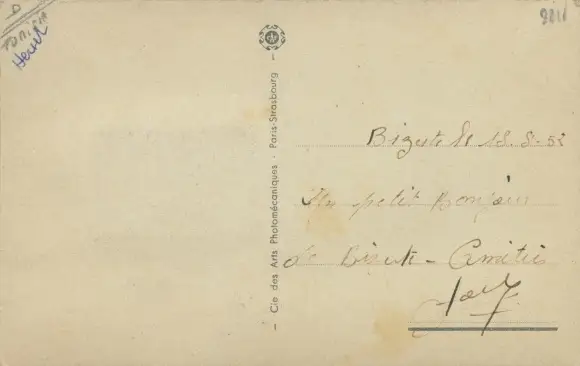 D
TUNISIA
Henri
Cie des Arts Photomécaniques - Paris-Strasbourg
Bizerte le 18-8-52
Un petit Bonjour
de Bizerte - Amitiés